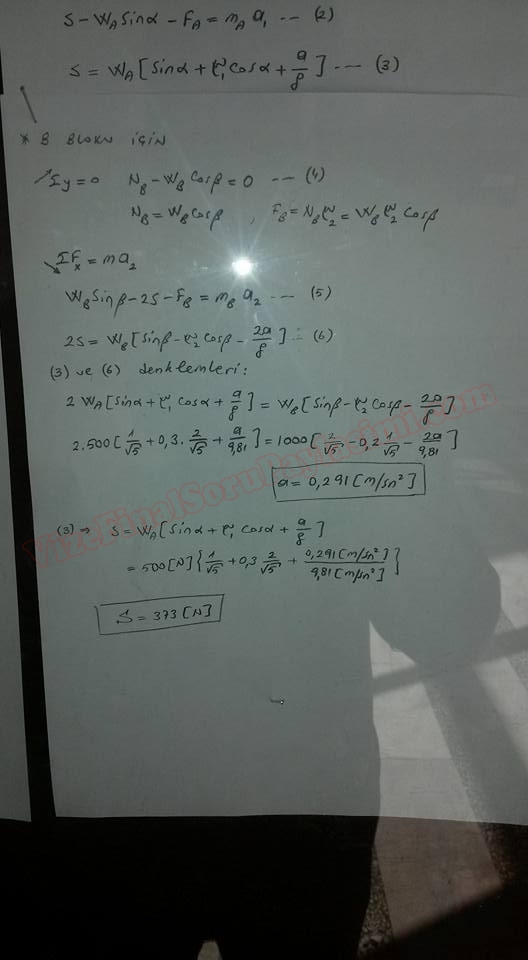 S - W_A Sinα - F_A = m_A a_1 --- (2)
S = W_A [Sinα + μ_1 Cosα + a/g] --- (3)
* B BLOKU İÇİN
Σy = 0 N_B - W_B Cosβ = 0 --- (4)
N_B = W_B Cosβ , F_B = N_B μ_2 = W_B μ_2 Cosβ
ΣF_x = m a_2
W_B Sinβ - 2S - F_B = m_B a_2 --- (5)
2S = W_B [Sinβ - μ_2 Cosβ - 2a/g] --- (6)
(3) ve (6) denklemleri:
2 W_A [Sinα + μ_1 Cosα + a/g] = W_B [Sinβ - μ_2 Cosβ - 2a/g]
2.500 [1/√5 + 0,3. 2/√5 + a/9,81] = 1000 [2/√5 - 0,2 1/√5 - 2a/9,81]
a = 0,291 [m/sn²]
(3) ⇒ S = W_A [Sinα + μ_1 Cosα + a/g]
= 500 [N] {1/√5 + 0,3 2/√5 + 0,291 [m/sn²]/9,81 [m/sn²]}
S = 373 [N]
VizeFinalSoruPaylasimi.com